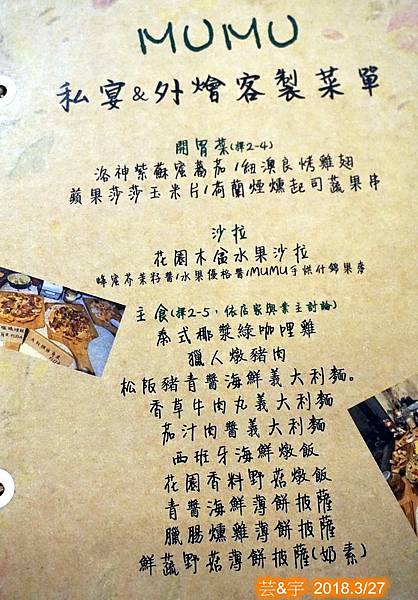 MUMU
私宴&外燴客製菜單
開胃菜(擇2-4)
洛神紫蘇蜜蕃茄/紐澳良烤雞翅
蘋果莎莎玉米片/荷蘭煙燻起司蔬果串
沙拉
花園木盒水果沙拉
蜂蜜芥茉籽醬/水果優格醬/MUMU手烘什錦果麥
主食(擇2-5,依店家與業主討論)
泰式椰漿綠咖哩雞
獵人燉豬肉
松阪豬青醬海鮮義大利麵。
香草牛肉丸義大利麵
茄汁肉醬義大利麵
西班牙海鮮燉飯
花園香料野菇燉飯
青醬海鮮薄餅披薩
臘腸燻雞薄餅披薩
鮮蔬野菇薄餅披薩(奶素)
芸&宇 2018.3/27